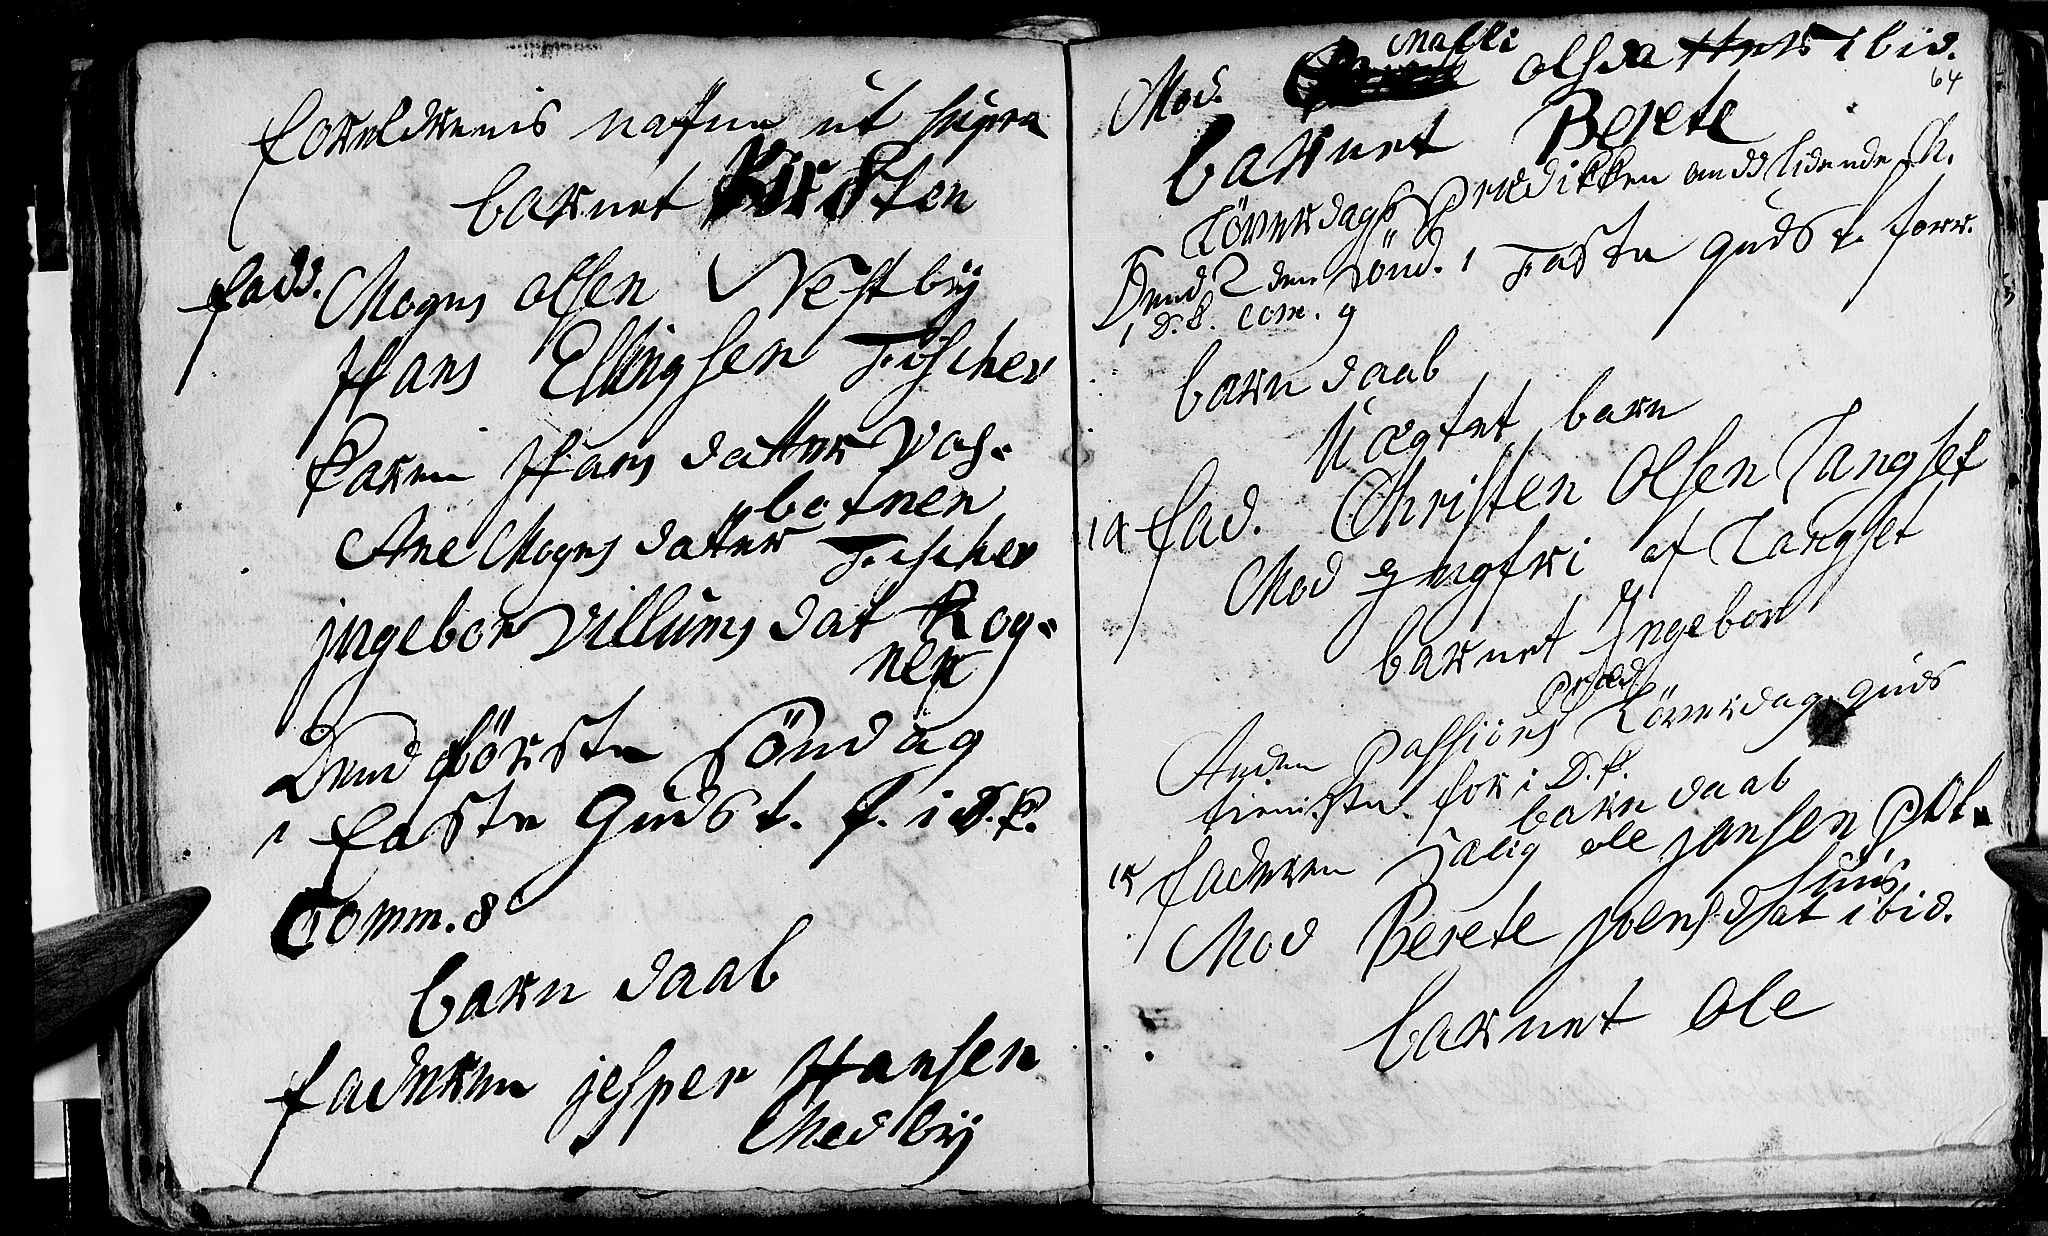 forældrenis nafne ut supra
barnet Kirsten
fadd. Mogns olsen Nestby
Hans Ellingsen Fischer
Karen Hans datter Vas-
botnen
Ane Mogns datter Fischer
jngebor Villums dat Rog-
nen
Dend förste Söndag
i faste Gudst. f. i S.k.
Comm. 8
barn daab
faderen jesper Hansen
Medby
64
Mod. Malli olsdatter ibid.
barnet Berete
Löverdags Prædikken over lidende Ch.
Dend 2den Sönd. i Faste Gudst. forr.
i S.k. com. 9
barn daab
Uægtet barn
fad. Christen Olsen Langset
Mod Jngfri af Langset
barnet Jngebor
Præd.
Anden Passions Löverdags Guds
tieniste for i S.k.
barn daab
faderen Salig ole jansen Pot-
huus
Mod Berete joensdat ibid.
barnet Ole